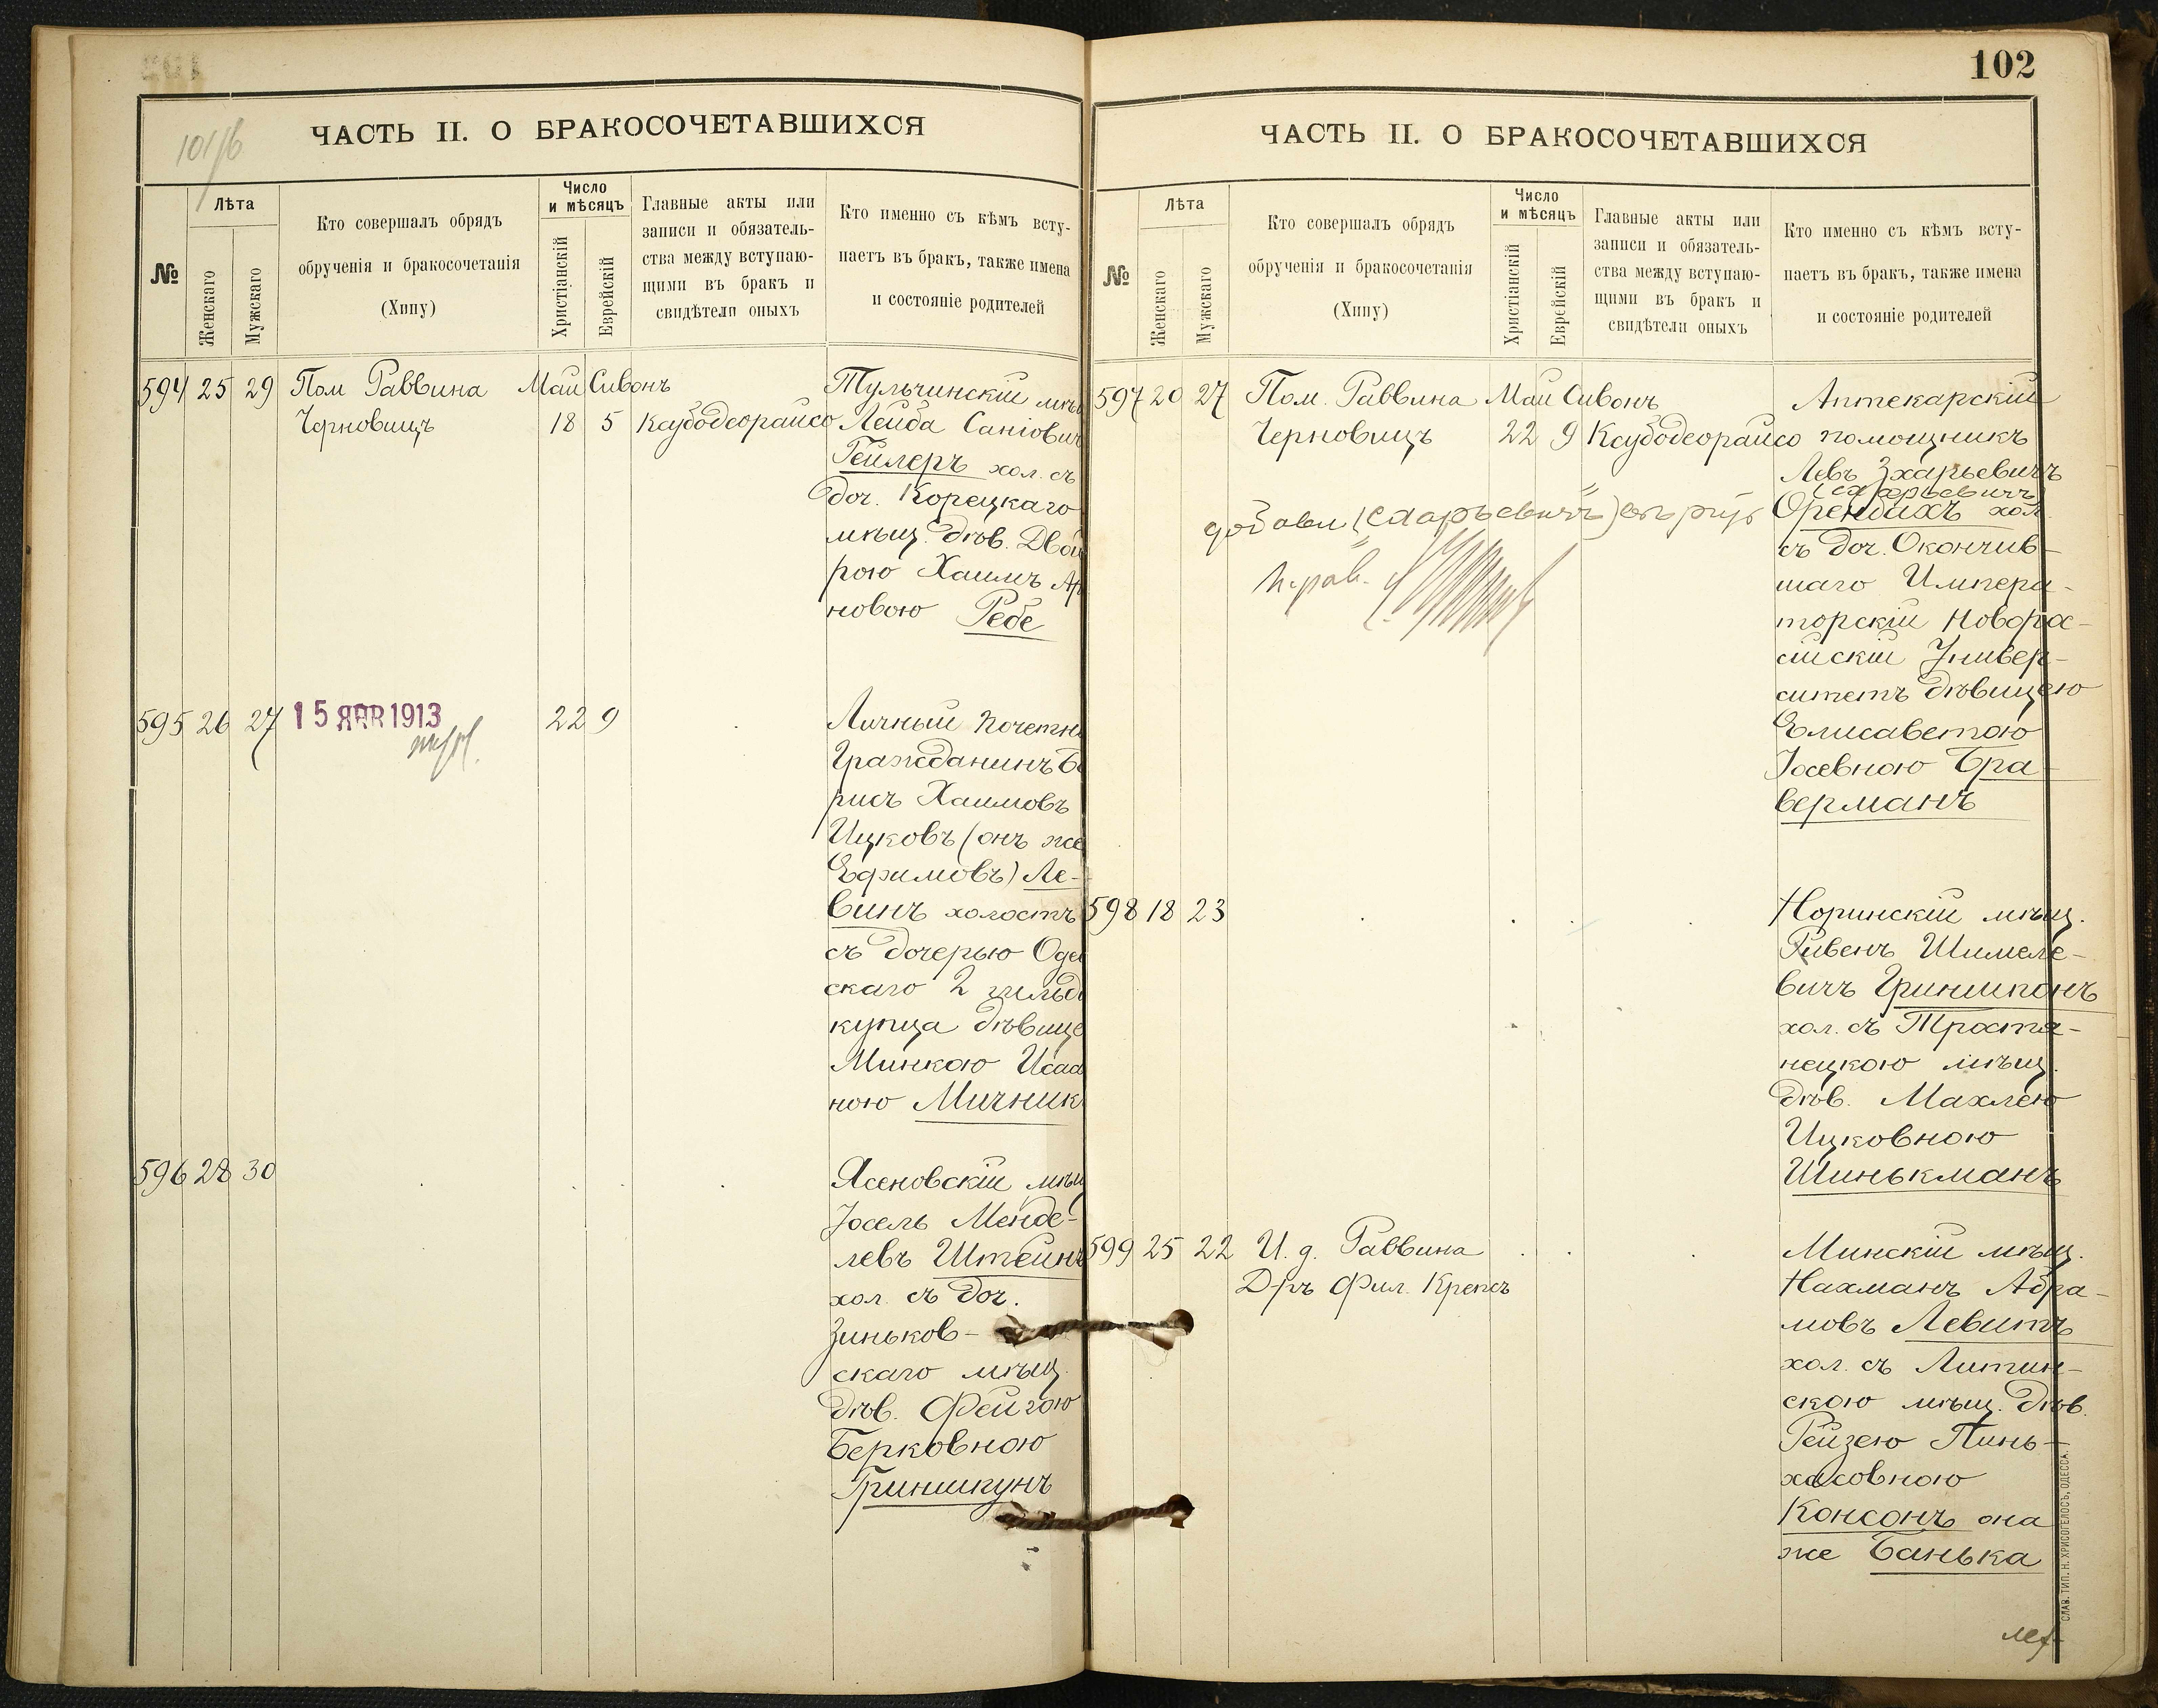 101/б
ЧАСТЬ II. О БРАКОСОЧЕТАВШИХСЯ
№
Лѣта
Женскаго
Мужскаго
Кто совершалъ обрядъ
обрученія и бракосочетанія
(Хипу)
Число
и мѣсяцъ
Христіанскій
Еврейскій
Главные акты или
записи и обязатель-
ства между вступаю-
щими въ бракъ и
свидѣтели оныхъ
Кто именно съ кѣмъ всту-
паетъ въ бракъ, также имена
и состояніе родителей
594 25 29 Пом Раввина Май Сивонъ Тульчинскій мѣщ
Черновицъ 18 5 Ксубодеорайсо Лейба Саніович
Гейлеръ хол. съ
доч. Корецкаго
мѣщ. дѣв. Двой
рою Хаимъ Ар
новою Ребе
595 26 27 15 ЯНВ 1913 22 9 Личный почетны
Гражданинъ Бо
рисъ Хаимовъ
Ицковъ (онъ же
Ефимовъ) Ле-
винъ холостъ
съ дочерью Одес
скаго 2 гильд
купца дѣвице
Минкою Исаа
ною Мичник
596 28 30 Ясеновскій мѣщ
Іосель Менде-
левъ Штейнъ
хол. съ доч.
Зиньков-
скаго мѣщ.
дѣв. Фейгою
Берковною
Гриншкунъ
102
ЧАСТЬ II. О БРАКОСОЧЕТАВШИХСЯ
№
Лѣта
Женскаго
Мужскаго
Кто совершалъ обрядъ
обрученія и бракосочетанія
(Хипу)
Число
и мѣсяцъ
Христіанскій
Еврейскій
Главные акты или
записи и обязатель-
ства между вступаю-
щими въ бракъ и
свидѣтели оныхъ
Кто именно съ кѣмъ всту-
паетъ въ бракъ, также имена
и состояніе родителей
597 20 27 Пом. Раввина Май Сивонъ Аптекарскій
Черновицъ 22 9 Ксубодеорайсо помощникъ
Левъ Зхарьевичъ
Орендахъ хол
съ доч. Окончив-
шаго Импера-
торскій Новорос-
сійскій Универ-
ситетъ дѣвицею
Елисаветою
Іосевною Бра-
верманъ
598 18 23 Норинскій мѣщ.
Рувенъ Шимеле-
вичъ Гриншпонъ
хол. съ Тростя-
нецкою мѣщ.
дѣв. Махлею
Ицковною
Шинькманъ
599 25 22 И. д. Раввина Минскій мѣщ.
Д-ръ Фил. Крепсъ Нахманъ Абра-
мовъ Левитъ
хол. съ Литин-
скою мѣщ. дѣв.
Рейзею Пинь-
хасовною
Консонъ она
же Банька
СЛАВ. ТИП. Н. ХРИСОГЕЛОСЪ, ОДЕССА.